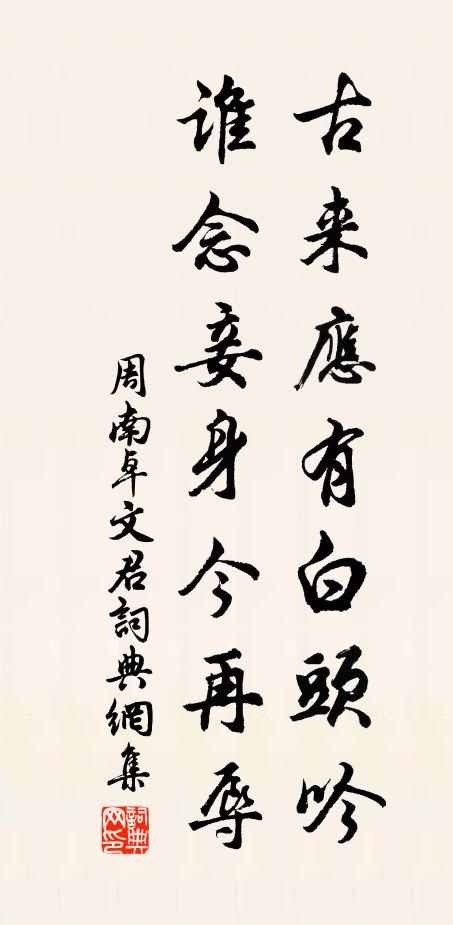 古来應有白頭吟
誰念妾身今再辱
周南卓文君詞典網集
詞典网印